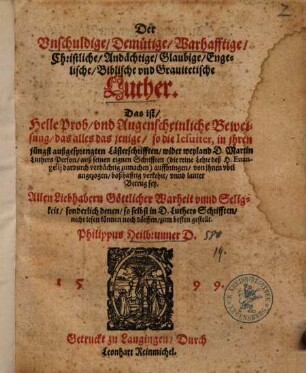 Der
Vnschuldige/ Demütige/ Warhafftige/
Christliche/ Andächtige/ Glaubige/ Enge-
lische/ Biblische vnd Grauitetische
Luther.
Das ist/
Helle Prob/ vnd Augenscheinliche Bewei-
sung/ das alles das jenige/ so die Iesuiter, in jhren
jüngst außgesprengten Lästerschrifften/ wider weyland D. Martin
Luthers Person/ auß seinen eignen Schrifften (die reine Lehr deß H. Euan-
gelij dardurch verdächtig zumachen) auffbringen/ von jhnen vbel
angezogen/ boßhafftig verkehrt/ vnnd lauter
Betrug sey.
Allen Liebhabern Göttlicher Warheit vnnd Selig-
keit/ sonderlich denen/ so selbst in D. Luthers Schrifften/
nicht lesen können noch dörffen/ zum besten gestelt.
Philippus Heilbrunner D.
15 99.
Getruckt zu Laugingen/ Durch
Leonhart Reinmichel.